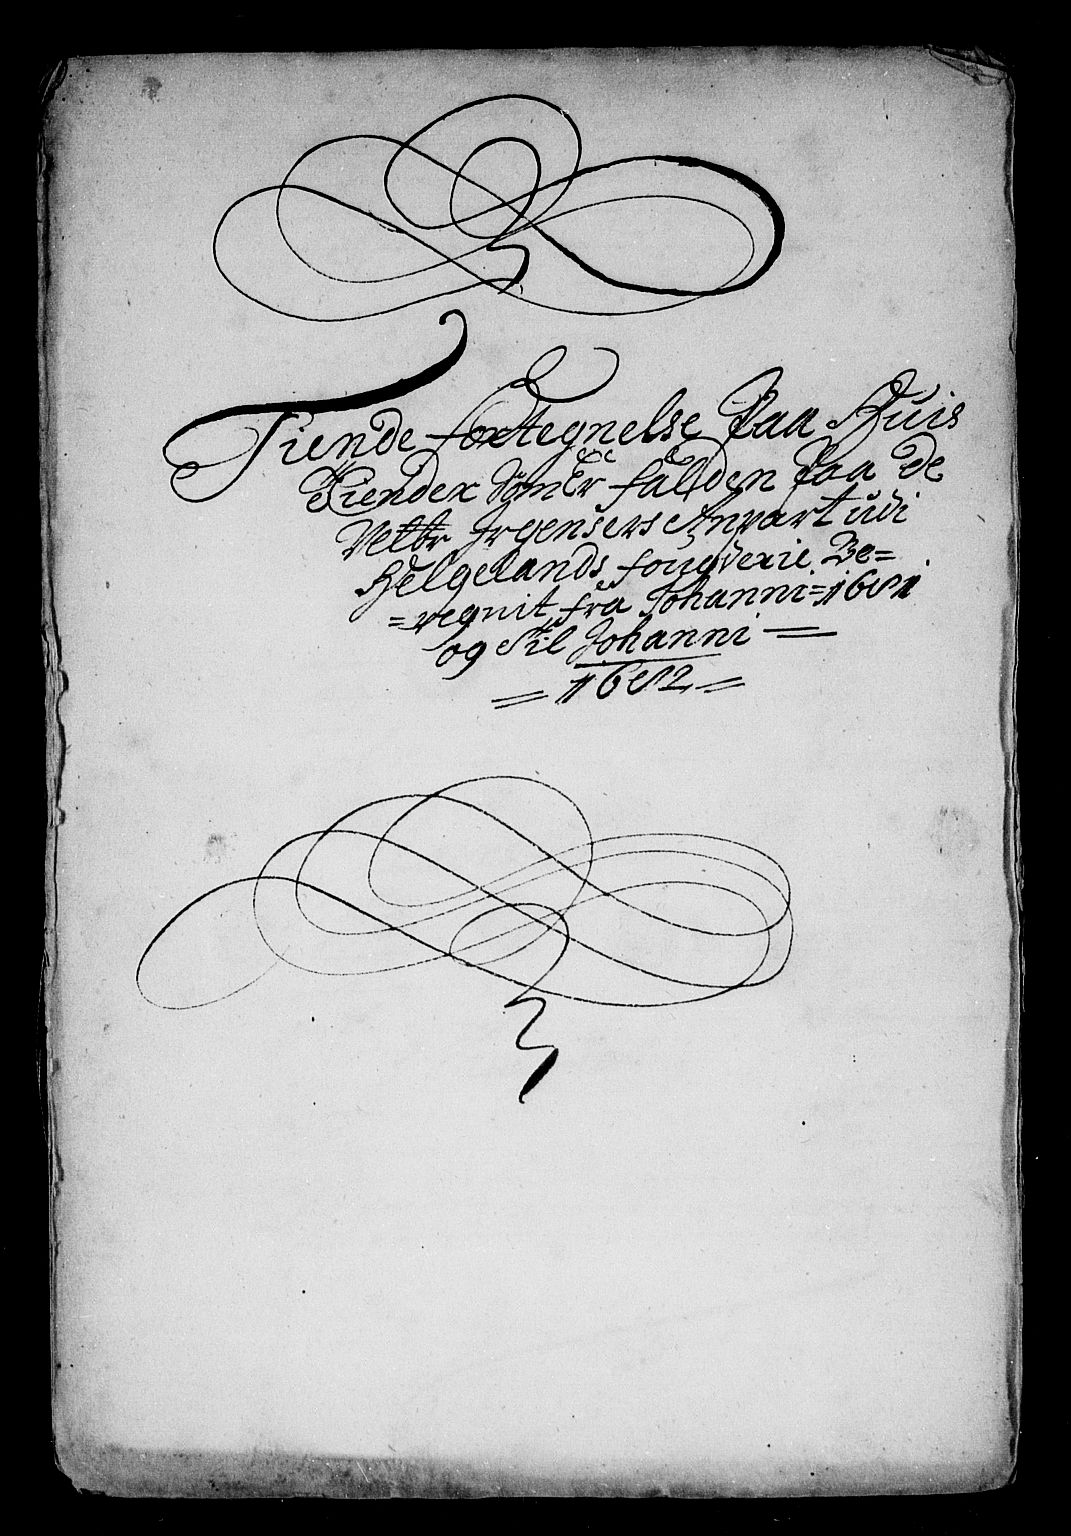 Tiende fortegnelse Paa Huis
Tiender Somer falden Paa De
Vettr Irgensers Anpart udi
Helgelands fougderie Be=
=regnit fra Johanni=1681
og Til Johanni
1682